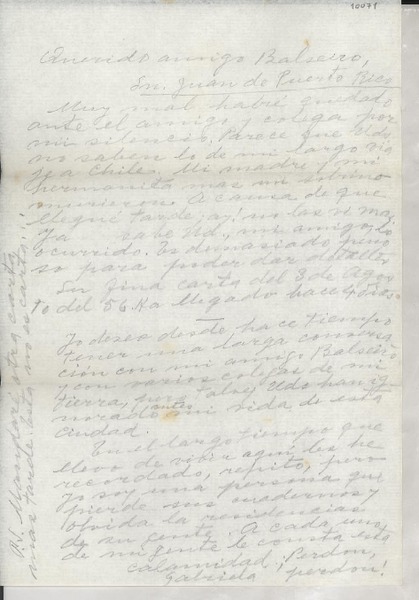 10071
Querido amigo Balseiro,
Sn. Juan de Puerto Rico
Muy mal habré quedado
ante el amigo y colega por
mi silencio. Parece que Uds.
no saben lo de mi largo via
je a Chile. Mi madre, mi
hermanita mas un sobrino
murieron. A causa de que
llegué tarde, ay! no los vi mas.
Ya sabe Ud., mi amigo, lo
ocurrido. Es demasiado peno
so para poder dar detalles.
Su fina carta del 3 de Agos
to del 56 ha llegado hace 4 dias.
Yo deseo desde hace tiempo
tener una larga conversa
ción con mi amigo Balseiro
y con varios colegas de mi
tierra, pues talvez Uds han ig
norado antes mi vida de esta
ciudad.
En el largo tiempo que
llevo de vivir aquí, les he
recordado, repito, pero
yo soy una persona que
pierde sus cuadernos y
olvida las residencias
de su gente. A cada uno
de mi gente le consta esta
calamidad. Perdon,
Gabriela perdon!
Mandaré otra carta
mas tarde. Esta no es carta!